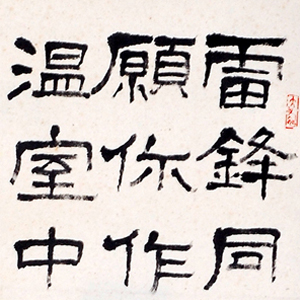 雷鋒同
願你作
温室中